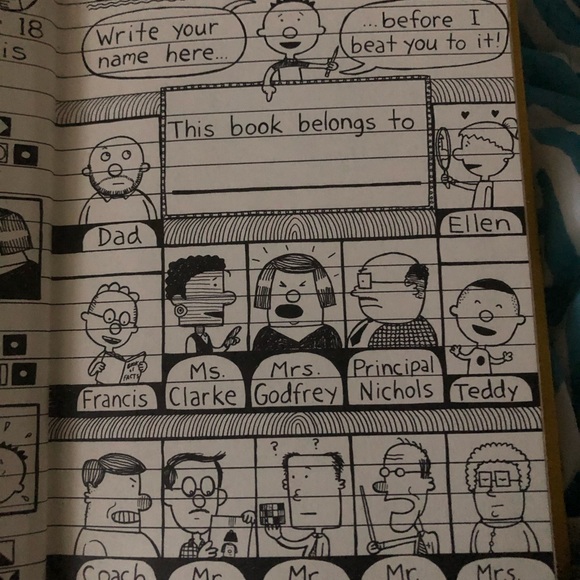 18
is
Write your
name here...
...before I
beat you to it!
This book belongs to
Dad
Ellen
Francis
Ms.
Clarke
Mrs.
Godfrey
Principal
Nichols
Teddy
? ?
Coach
Mr.
Mr.
Mr.
Mrs.